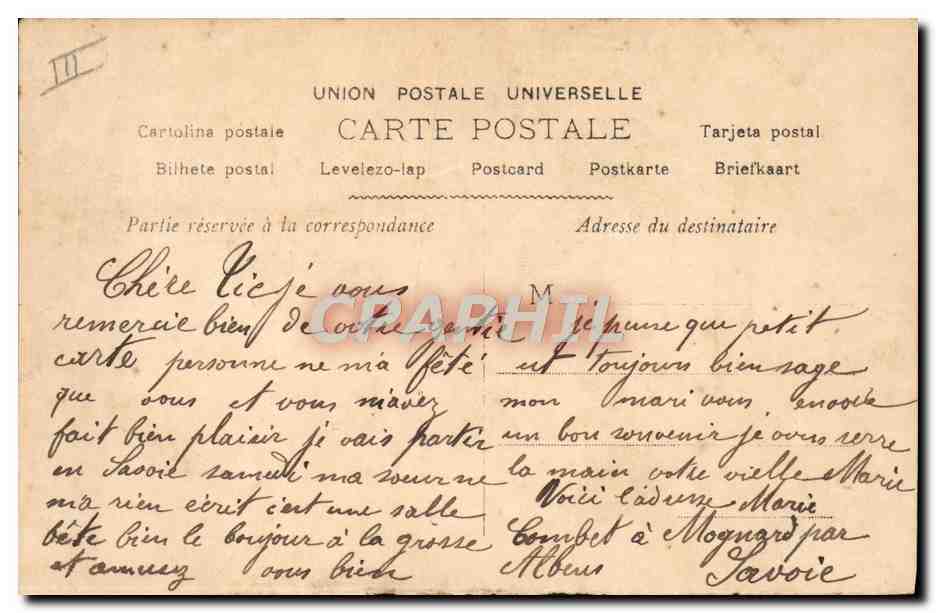 III
UNION POSTALE UNIVERSELLE
Cartolina postale CARTE POSTALE Tarjeta postal
Bilhete postal Levelezo-lap Postcard Postkarte Briefkaart
Partie réservée à la correspondance
Adresse du destinataire
CPARHIL
Chére Vic je vous
remercie bien de votre gentie
carte personne ne m'a fêté
que vous et vous m'avez
fait bien plaisir je vais partir
en Savoie samedi ma soeur ne
m'a rien écrit c'est une salle
bête bien le boujour à la grosse
et amusez vous bien
M
je pense que petit
est toujours bien sage
mon mari vous envoie
un bon souvenir je vous serre
la main votre vielle Marie
Voici l'adresse Marie
Combet à Mognard par
Albens Savoie